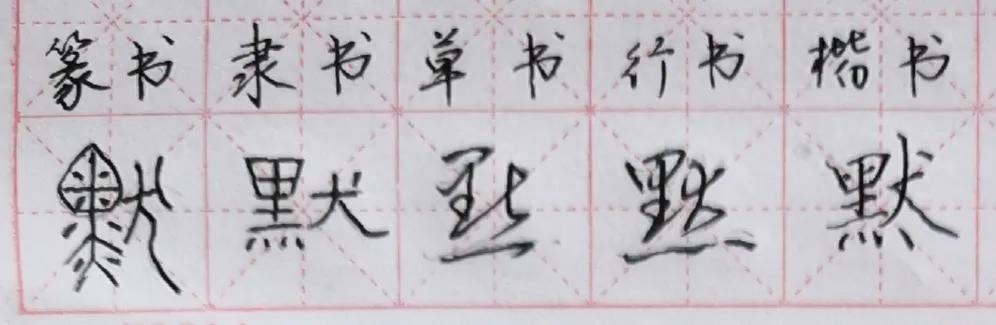 篆书 隶书 草书 行书 楷书
默 默 默 默 默